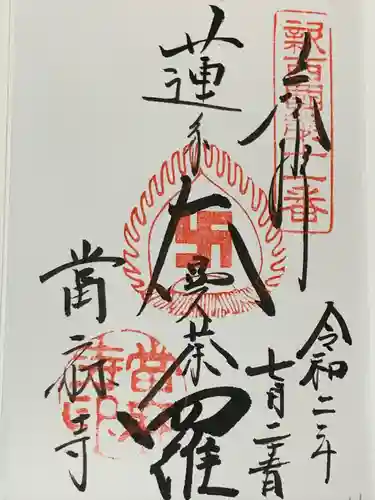 奉拝
新西国第十一番
蓮糸大曼荼羅
當麻寺
令和二年
七月二十四日